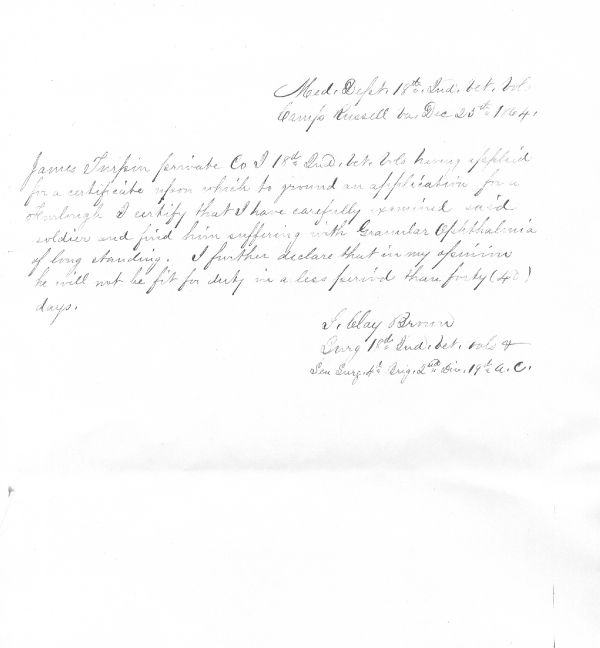 Med. Dept. 18th. Ind. Vet. Vol.
Camp Russell Va. Dec 25th 1864.
James Turpin private Co I 18th Ind. Vet. Vols having applied
for a certificate upon which to ground an application for a
Furlough I certify that I have carefully examined said
soldier and find him suffering with Granular Ophthalmia
of long standing. I further declare that in my opinion
he will not be fit for duty in a less period than forty (40)
days.
Clay Brown
Surg 18th Ind. Vet. Vols &
Surg. 4th Brig. 2nd Div. 19th A. C.